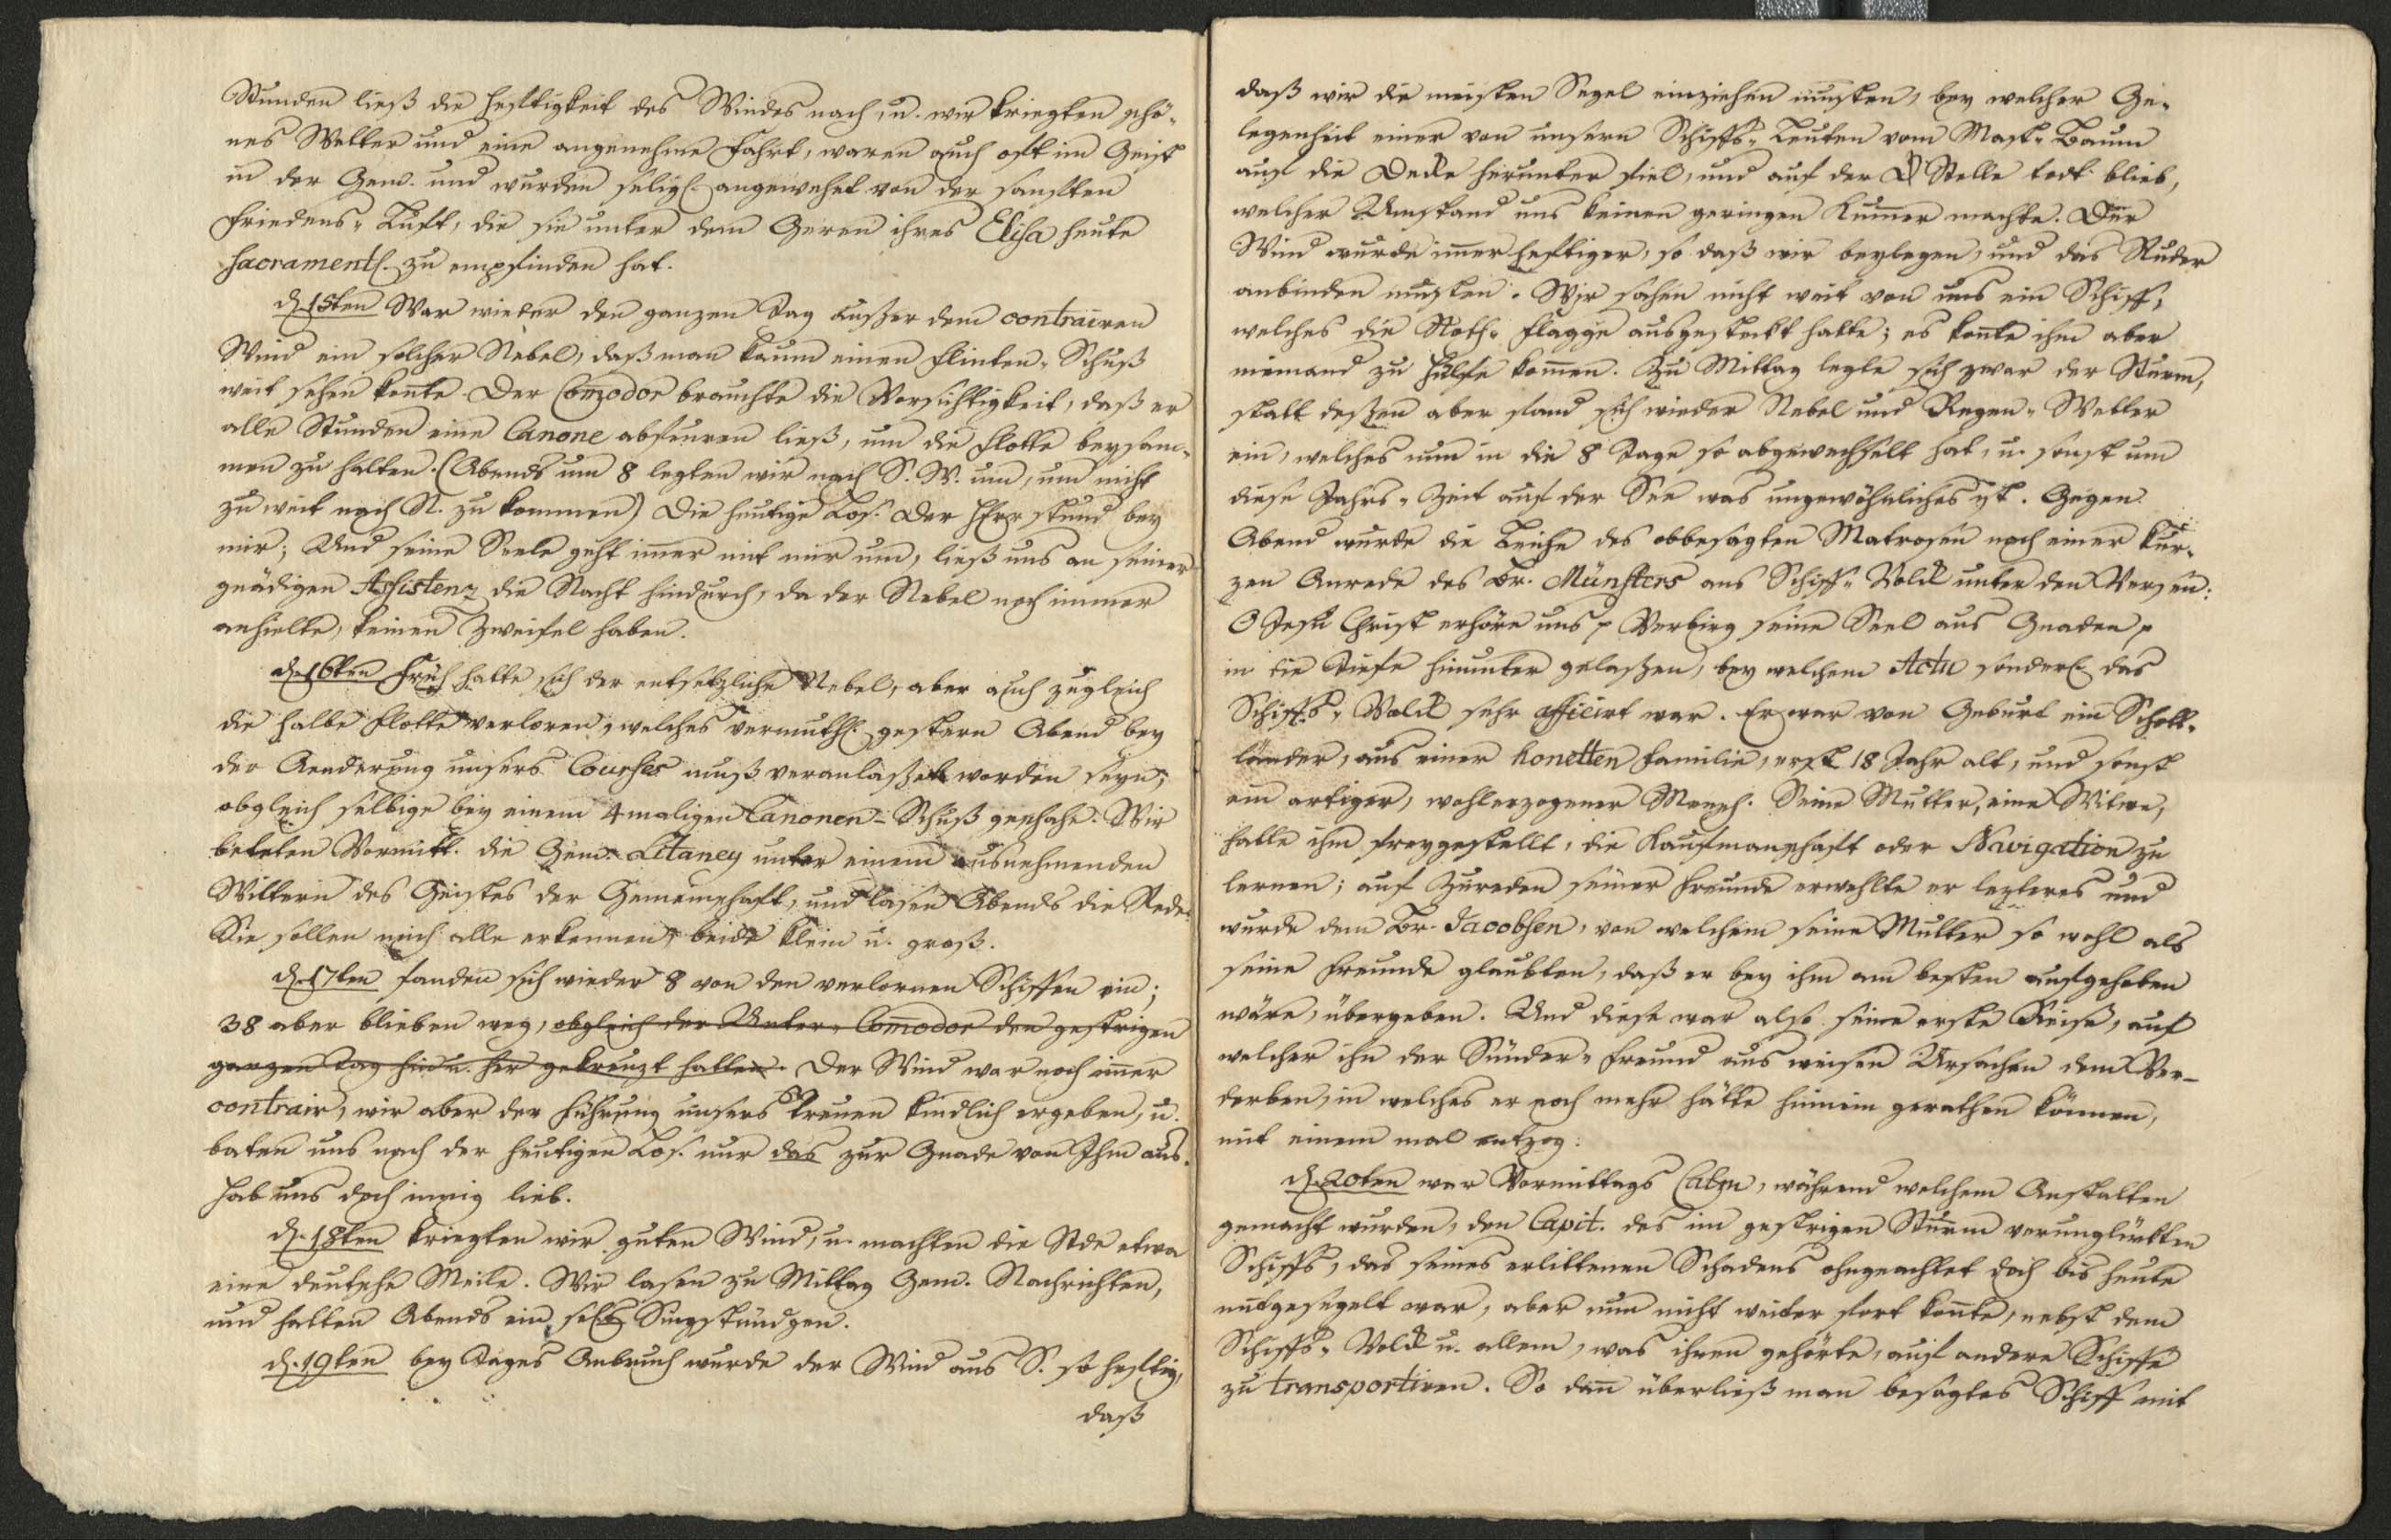 Stunden ließ die Heftigkeit des Windes nach, u. wir kriegten schö-
nes Wetter und eine angenehme Fahrt, waren auch oft im Geist
in der Gem. und wurden seligl. angewehet von der sanften
Friedens-Luft, die sie unter dem Geren ihres Elisa heute
sacramentl. zu empfinden hat.
d. 15ten War wieder den ganzen Tag außer dem contrairen
Wind ein solcher Nebel, daß man kaum einen Flinten-Schuß
weit sehen konnte. Der Com̄odor brauchte die Vorsichtigkeit, daß er
alle Stunden eine Canone abfeuren ließ, um die Flotte beysam-
men zu halten. (Abends um 8 legten wir nach S. W. um, um nicht
zu weit nach N. zu kommen) Die heutige Los. Der HErr stund bey
mir; Und seine Seele geht im̄er mit mir um, ließ uns an seiner
gnädigen Assistenz die Nacht hindurch, da der Nebel noch immer
anhielte, keinen Zweifel haben.
d. 16ten Früh hatte sich der entsetzliche Nebel, aber auch zugleich
die halbe Flotte verloren, welches vermuthl. gestern Abend bey
der Aenderung unsers Courses muß veranlaßet worden seyn;
obgleich selbige bey einem 4maligen Canonen-Schuß geschahe. Wir
beteten Vormitt. die Gem. Litaney unter einem ausnehmenden
Wittern des Geistes der Gemeinschaft, und lasen Abends die Rede:
Sie sollen mich alle erkennen beide klein u. groß.
d. 17ten fanden sich wieder 8 von den verlornen Schiffen ein;
38 aber blieben weg, obgleich der Unter-Com̄odor den gestrigen
ganzen Tag hin u. her gekreuzt hatten. Der Wind war noch im̄er
contrair, wir aber der Führung unsers Treuen kindlich ergeben, u.
baten uns nach der heutigen Los. nur das zur Gnade von Ihm aus.
Hab uns doch innig lieb.
d. 18ten kriegten wir guten Wind, u. machten die Stde etwa
eine deutsche Meile. Wir lasen zu Mittag Gem. Nachrichten,
und hatten Abends ein sel. Singstündgen.
d. 19ten bey Tages Anbruch wurde der Wind aus S. so heftig,
daß
daß wir die meisten Segel einziehen musten, bey welcher Ge-
legenheit einer von unsern Schiffs-Leuten vom Mast-Baum
auf die Decke herunter fiel, und auf der Stelle todt blieb,
welcher Umstand uns keinen geringen Kum̄er machte. Der
Wind wurde im̄er heftiger, so daß wir beylegen, und das Ruder
anbinden musten. Wir sahen nicht weit von uns ein Schiff,
welches die Noth-Flagge ausgesteckt hatte; es kon̄te ihm aber
niemand zu Hülfe kom̄en. Zu Mittag legte sich zwar der Sturm,
statt deßen aber fand sich wieder Nebel und Regen-Wetter
ein, welches nun in die 8 Tage so abgewechselt hat, u. sonst um
diese Jahrs-Zeit auf der See was ungewöhnliches ist. Gegen
Abend wurde die Leiche des obbesagten Matrosen nach einer kur-
zen Anrede des Br. Münsters ans Schiff-Volck unter den Versen:
O Jesu Christ erhöre uns p Verbirg seine Seel aus Gnaden p
in die Tiefe hinunter gelaßen, bey welchem Actu sonderl. das
Schiffs-Volck sehr afficirt war. Er war von Geburt ein Schott-
länder, aus einer honetten Familie, erst 18 Jahr alt, und sonst
ein artiger, wohlerzogener Mensch. Seine Mutter, eine Witwe,
hatte ihm freygestellt, die Kaufmanschaft oder Navigation zu
lernen; auf Zureden seiner Freunde erwehlte er lezteres und
wurde dem Br. Jacobsen, von welchem seine Mutter so wohl als
seine Freunde glaubten, daß er bey ihm am besten aufgehoben
wäre, übergeben. Und diese war also seine erste Reise, auf
welcher ihn der Sünder-Freund aus weisen Ursachen dem Ver-
derben, in welches er noch mehr hätte hinein gerathen können,
mit einem mal entzog.
d. 20ten war Vormittags Calm, während welchem Anstalten
gemacht wurden, den Capit. des im gestrigen Sturm verunglückten
Schiffs, das seines erlittenen Schadens ohngeachtet doch bis heute
mitgesegelt war, aber nun nicht weiter fort kon̄te, nebst dem
Schiffs-Volck u. allem, was ihnen gehörte, auf andere Schiffe
zu transportiren. So dan̄ überließ man besagtes Schiff mit